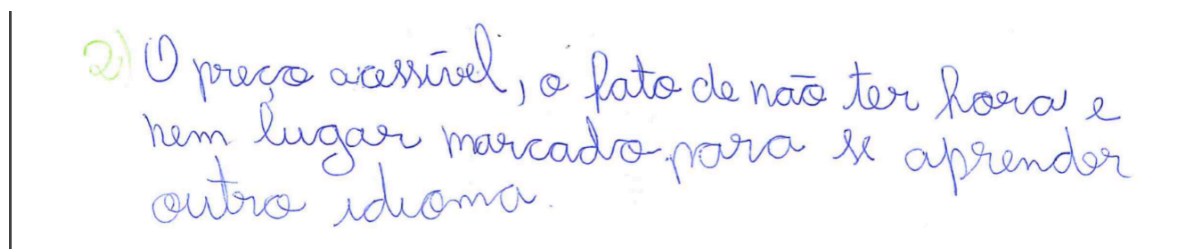 2) O preço acessível, o fato de não ter hora e
nem lugar marcado para se aprender
outro idioma.